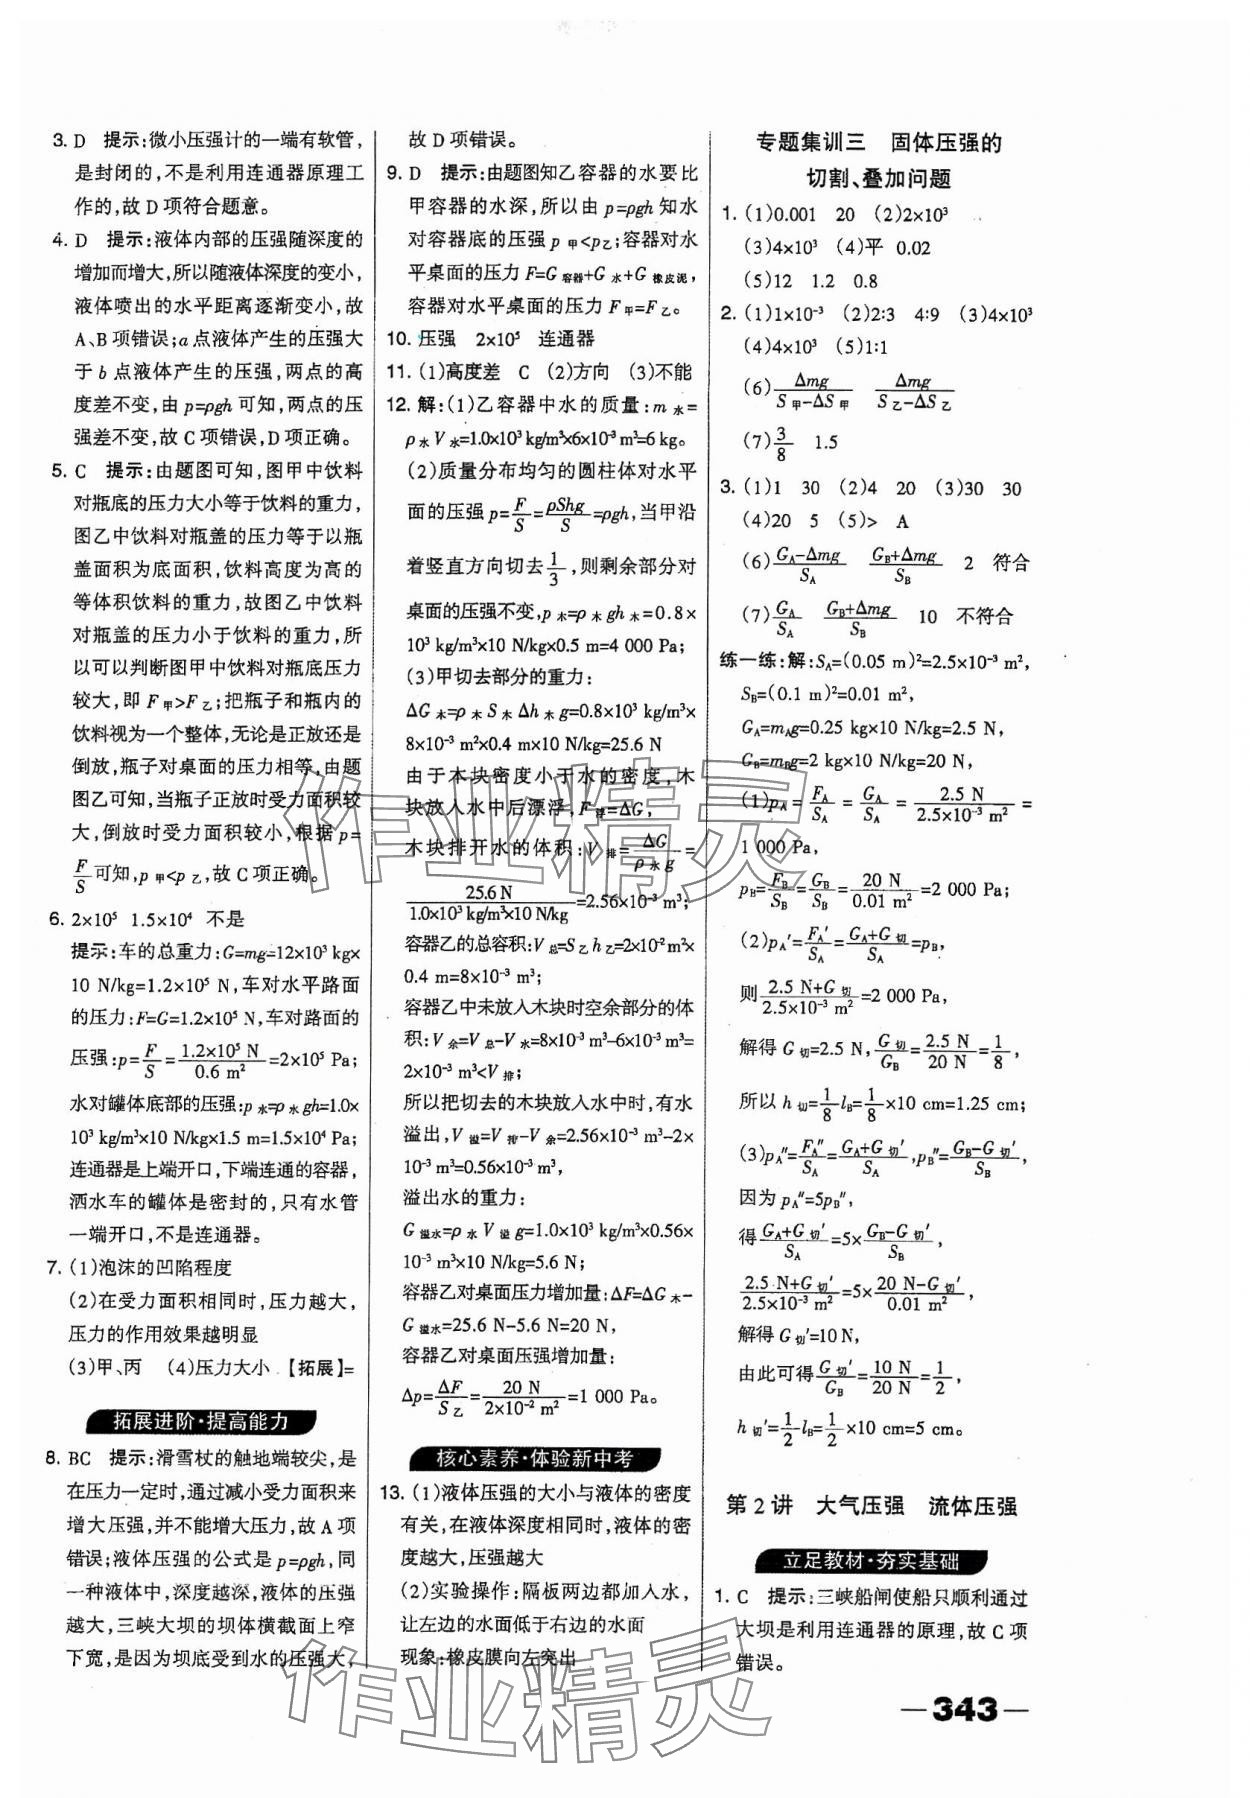 3. D 提示:微小压强计的一端有软管,
是封闭的,不是利用连通器原理工
作的,故 D 项符合题意。
4. D 提示:液体内部的压强随深度的
增加而增大,所以随液体深度的变小,
液体喷出的水平距离逐渐变小,故
A、B 项错误;a 点液体产生的压强大
于 b 点液体产生的压强,两点的高
度差不变,由 p=ρgh 可知,两点的压
强差不变,故 C 项错误,D 项正确。
5. C 提示:由题图可知,图甲中饮料
对瓶底的压力大小等于饮料的重力,
图乙中饮料对瓶盖的压力等于以瓶
盖面积为底面积,饮料高度为高的
等体积饮料的重力,故图乙中饮料
对瓶盖的压力小于饮料的重力,所
以可以判断图甲中饮料对瓶底压力
较大,即 F甲>F乙;把瓶子和瓶内的
饮料视为一个整体,无论是正放还是
倒放,瓶子对桌面的压力相等,由题
图乙可知,当瓶子正放时受力面积较
大,倒放时受力面积较小,根据 p=
F/S 可知,p甲<p乙,故 C 项正确。
6. 2×10⁵ 1.5×10⁴ 不是
提示:车的总重力:G=mg=12×10³ kg×
10 N/kg=1.2×10⁵ N,车对水平路面
的压力:F=G=1.2×10⁵ N,车对路面的
压强:p=F/S=1.2×10⁵ N/0.6 m²=2×10⁵ Pa;
水对罐体底部的压强:p水=ρ水gh=1.0×
10³ kg/m³×10 N/kg×1.5 m=1.5×10⁴ Pa;
连通器是上端开口,下端连通的容器,
洒水车的罐体是密封的,只有水管
一端开口,不是连通器。
7. (1)泡沫的凹陷程度
(2)在受力面积相同时,压力越大,
压力的作用效果越明显
(3)甲、丙 (4)压力大小 【拓展】=
拓展进阶·提高能力
8. BC 提示:滑雪杖的触地端较尖,是
在压力一定时,通过减小受力面积来
增大压强,并不能增大压力,故 A 项
错误;液体压强的公式是 p=ρgh,同
一种液体中,深度越深,液体的压强
越大,三峡大坝的坝体横截面上窄
下宽,是因为坝底受到水的压强大,
故 D 项错误。
9. D 提示:由题图知乙容器的水要比
甲容器的水深,所以由 p=ρgh 知水
对容器底的压强 p甲<p乙;容器对水
平桌面的压力 F=G容器+G水+G橡皮泥,
容器对水平桌面的压力 F甲=F乙。
10. 压强 2×10⁵ 连通器
11. (1)高度差 C (2)方向 (3)不能
12. 解:(1)乙容器中水的质量:m水=
ρ水V水=1.0×10³ kg/m³×6×10⁻³ m³=6 kg。
(2)质量分布均匀的圆柱体对水平
面的压强 p=F/S=ρShg/S=ρgh,当甲沿
着竖直方向切去1/3,则剩余部分对
桌面的压强不变,p木=ρ木gh木=0.8×
10³ kg/m³×10 N/kg×0.5 m=4 000 Pa;
(3)甲切去部分的重力:
ΔG木=ρ木S木Δh木g=0.8×10³ kg/m³×
8×10⁻³ m²×0.4 m×10 N/kg=25.6 N
由于木块密度小于水的密度,木
块放入水中后漂浮,F浮=ΔG,
木块排开水的体积:V排=ΔG/ρ水g=
25.6 N/1.0×10³ kg/m³×10 N/kg=2.56×10⁻³ m³;
容器乙的总容积:V总=S乙h乙=2×10⁻² m²×
0.4 m=8×10⁻³ m³;
容器乙中未放入木块时空余部分的体
积:V余=V总-V水=8×10⁻³ m³-6×10⁻³ m³=
2×10⁻³ m³<V排;
所以把切去的木块放入水中时,有水
溢出,V溢=V排-V余=2.56×10⁻³ m³-2×
10⁻³ m³=0.56×10⁻³ m³,
溢出水的重力:
G溢水=ρ水V溢g=1.0×10³ kg/m³×0.56×
10⁻³ m³×10 N/kg=5.6 N;
容器乙对桌面压力增加量:ΔF=ΔG木-
G溢水=25.6 N-5.6 N=20 N,
容器乙对桌面压强增加量:
Δp=ΔF/S乙=20 N/2×10⁻² m²=1 000 Pa。
核心素养·体验新中考
13. (1)液体压强的大小与液体的密度
有关,在液体深度相同时,液体的密
度越大,压强越大
(2)实验操作:隔板两边都加入水,
让左边的水面低于右边的水面
现象:橡皮膜向左突出
专题集训三 固体压强的
切割、叠加问题
1. (1)0.001 20 (2)2×10³
(3)4×10³ (4)平 0.02
(5)12 1.2 0.8
2. (1)1×10⁻³ (2)2∶3 4∶9 (3)4×10³
(4)4×10³ (5)1∶1
(6)Δmg/S甲-ΔS甲 Δmg/S乙-ΔS乙
(7)3/8 1.5
3. (1)1 30 (2)4 20 (3)30 30
(4)20 5 (5)> A
(6)G_A-Δmg/S_A G_B+Δmg/S_B 2 符合
(7)G_A/S_A G_B+Δmg/S_B 10 不符合
练一练:解:S_A=(0.05 m)²=2.5×10⁻³ m²,
S_B=(0.1 m)²=0.01 m²,
G_A=m_Ag=0.25 kg×10 N/kg=2.5 N,
G_B=m_Bg=2 kg×10 N/kg=20 N,
(1)p_A=F_A/S_A=G_A/S_A=2.5 N/2.5×10⁻³ m²=
1 000 Pa,
p_B=F_B/S_B=G_B/S_B=20 N/0.01 m²=2 000 Pa;
(2)p_A′=F_A′/S_A=G_A+G切/S_A=p_B,
则2.5 N+G切/2.5×10⁻³ m²=2 000 Pa,
解得 G切=2.5 N,G切/G_B=2.5 N/20 N=1/8,
所以 h切=1/8l_B=1/8×10 cm=1.25 cm;
(3)p_A″=F_A″/S_A=G_A+G切′/S_A,p_B″=G_B-G切′/S_B,
因为 p_A″=5p_B″,
得G_A+G切′/S_A=5×G_B-G切′/S_B,
2.5 N+G切′/2.5×10⁻³ m²=5×20 N-G切′/0.01 m²,
解得 G切′=10 N,
由此可得G切′/G_B=10 N/20 N=1/2,
h切′=1/2l_B=1/2×10 cm=5 cm。
第 2 讲 大气压强 流体压强
立足教材·夯实基础
1. C 提示:三峡船闸使船只顺利通过
大坝是利用连通器的原理,故 C 项
错误。
—343—
作业精灵
作业精灵